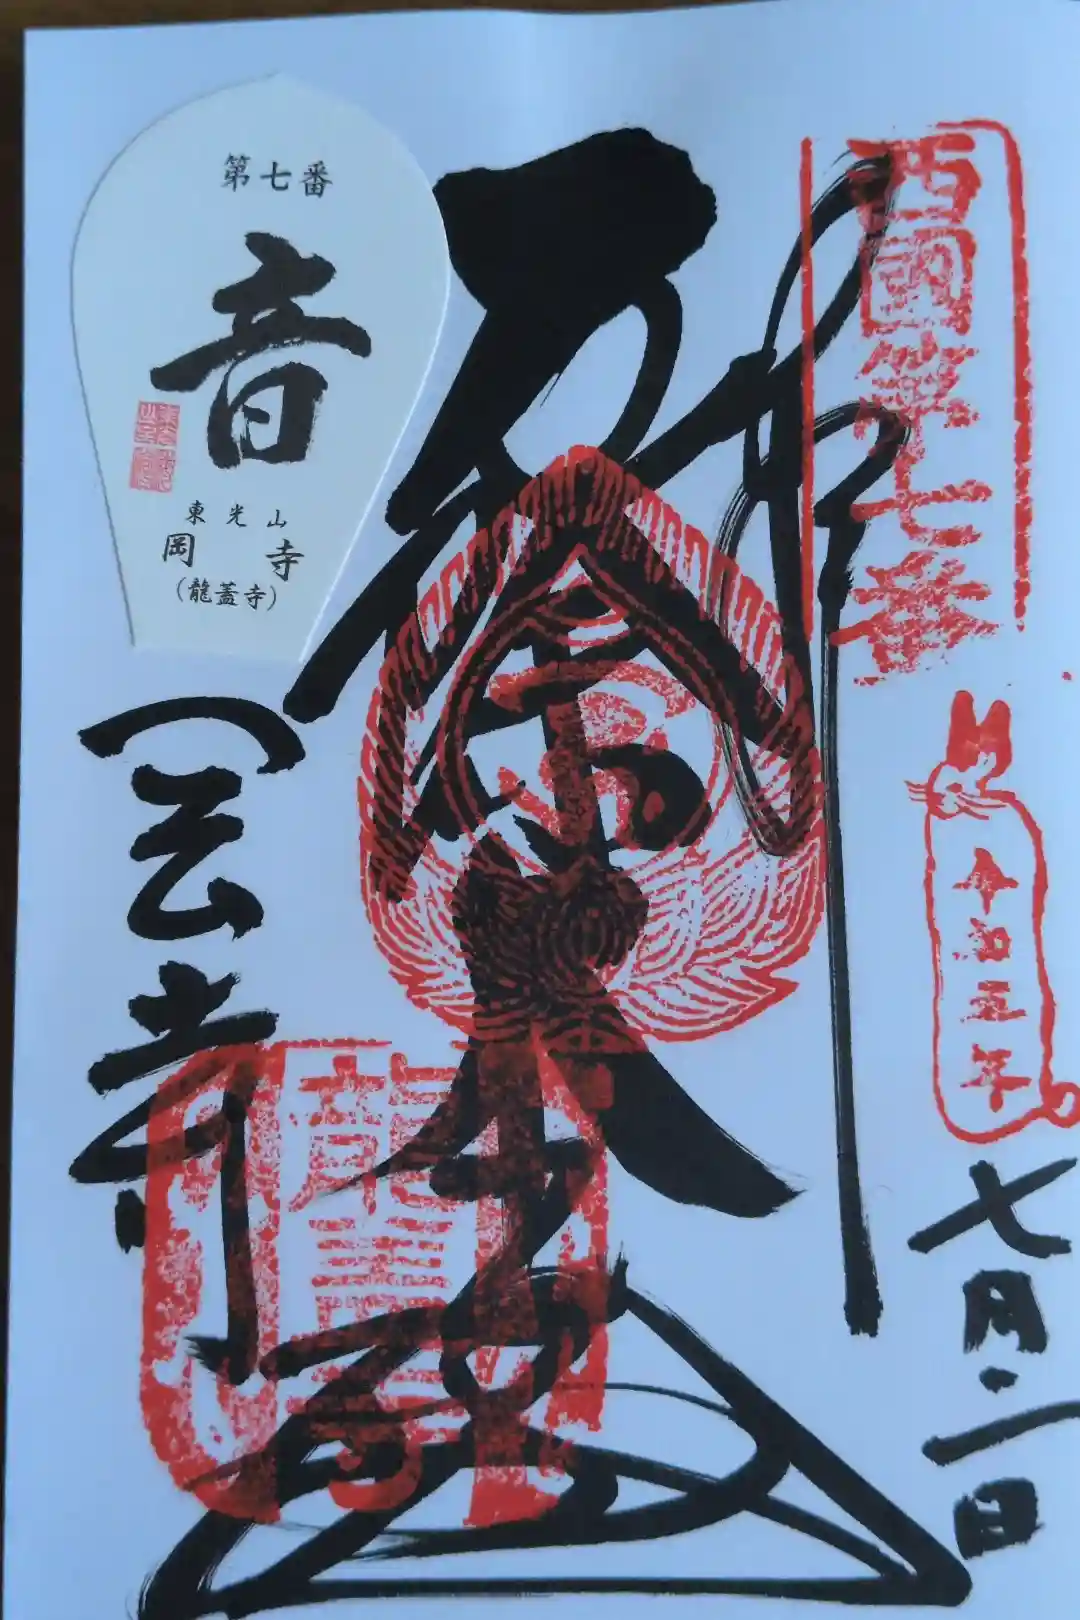 第七番
音
東光山
岡寺
(龍蓋寺)
西國第七番
令和五年
七月二日
岡寺
龍蓋寺